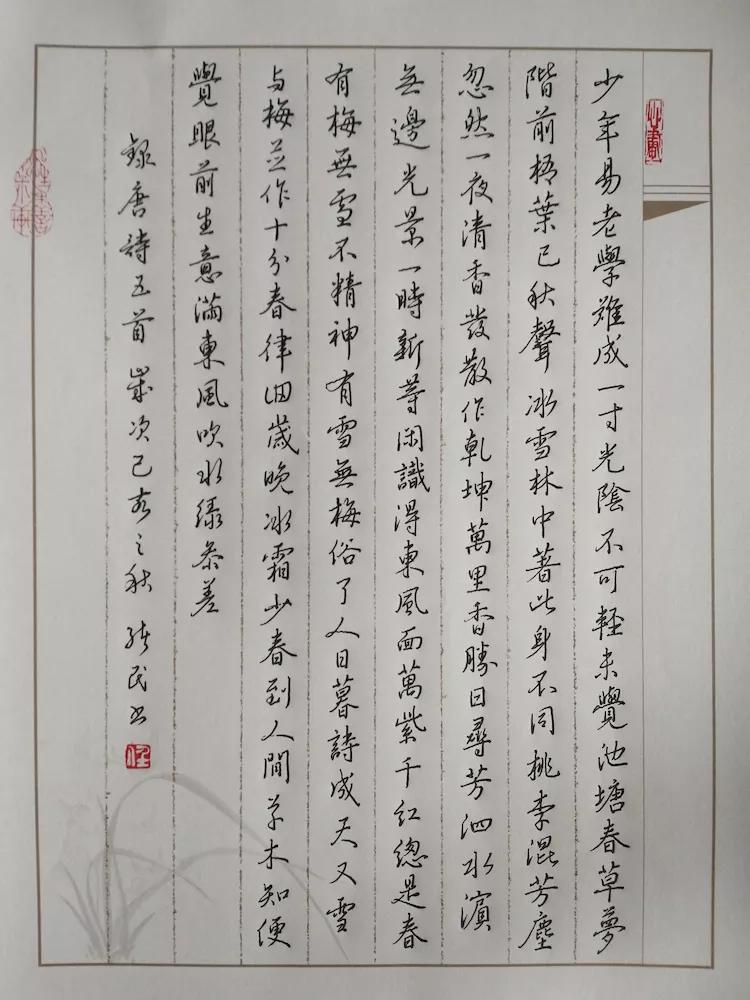 少年易老學難成一寸光陰不可輕未覺池塘春草夢
階前梧葉已秋聲冰雪林中著此身不同桃李混芳塵
忽然一夜清香發散作乾坤萬里香勝日尋芳泗水濱
無邊光景一時新等闲識得東風面萬紫千紅總是春
有梅無雪不精神有雪無梅俗了人日暮詩成天又雪
与梅並作十分春律囬歲晚冰霜少春到人間草木知便
覺眼前生意滿東風吹水綠参差
録唐詩五首 歲次己亥之秋 民书
心畫